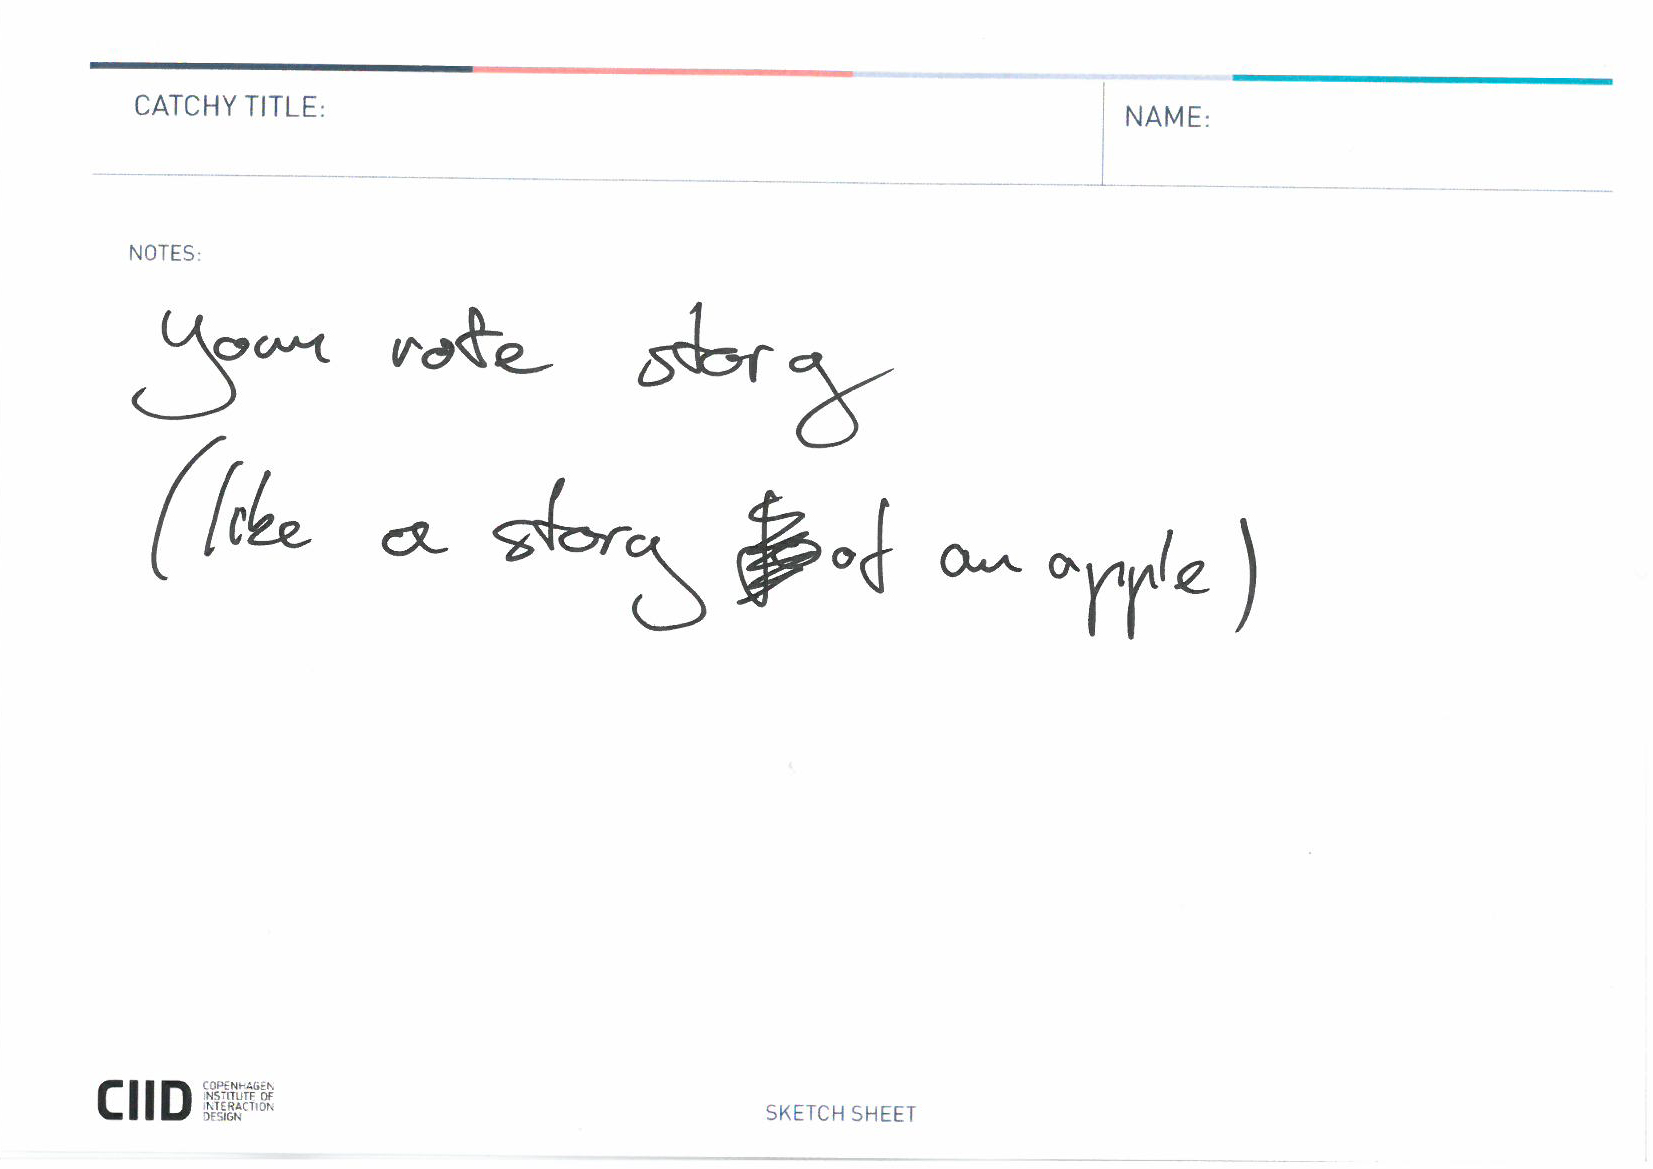 CATCHY TITLE:
NAME:
NOTES:
your vote story
(like a story of an apple)
CIID
COPENHAGEN
INSTITUTE OF
INTERACTION
DESIGN
SKETCH SHEET